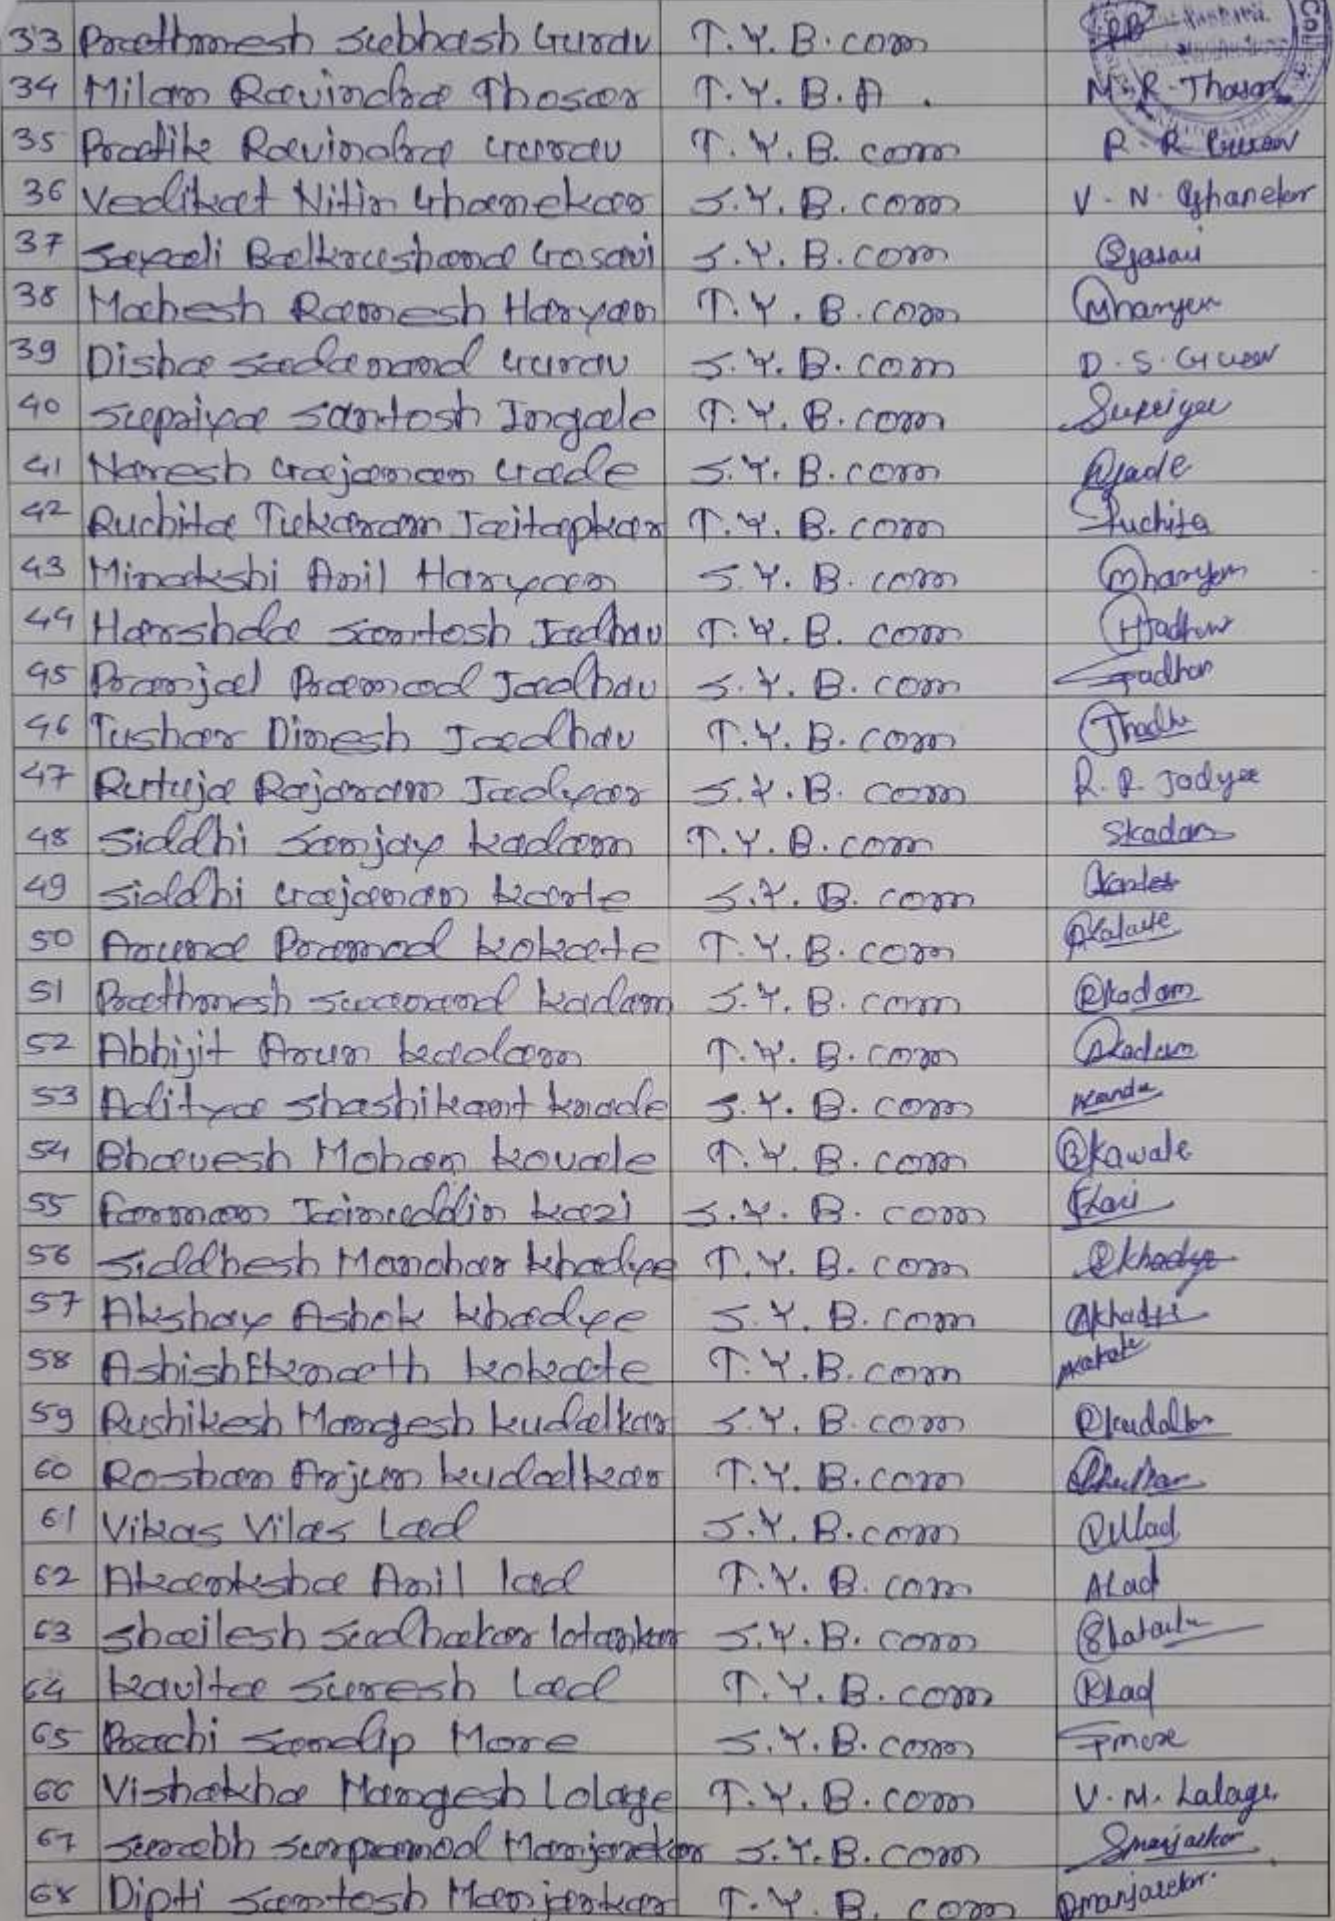 33 Prathmesh Subhash Gurav T.Y.B.com
34 Milan Ravindra Thosar T.Y.B.A. M.R.Thosar
35 Pratik Ravindra Gurav T.Y.B.com R.R Gurav
36 Vedikat Nitin Ghanekar S.Y.B.com V.N.Ghanekar
37 Sayali Balkrushana Gosavi S.Y.B.com SGosavi
38 Mahesh Ramesh Haryan T.Y.B.com Mharyan
39 Disha Sadanand Gurav S.Y.B.com D.S.Gurav
40 Supriya Santosh Ingale T.Y.B.com Supriya
41 Naresh Gajanan Gade S.Y.B.com NGade
42 Ruchita Tukaram Jaitapkar T.Y.B.com Ruchita
43 Minakshi Anil Haryan S.Y.B.com Mharyan
44 Harshda Santosh Jadhav T.Y.B.com HJadhav
45 Pranjal Pramod Jadhav S.Y.B.com PJadhav
46 Tushar Dinesh Jadhav T.Y.B.com
47 Rutuja Rajaram Jadyar S.Y.B.com R.R.Jadyar
48 Siddhi Sanjay kadam T.Y.B.com Skadam
49 Siddhi Gajanan karle S.Y.B.com
50 Aruna Pramod kokate T.Y.B.com
51 Prathmesh Suanand kadam S.Y.B.com Pkadam
52 Abhijit Arun kadam T.Y.B.com Akadam
53 Aditya Shashikant knade S.Y.B.com
54 Bhavesh Mohan kovale T.Y.B.com Bkawale
55 Farman Jainuddin kazi S.Y.B.com
56 Siddhesh Manohar khadye T.Y.B.com Skhadye
57 Akshay Ashok khadye S.Y.B.com Akhadye
58 Ashish Eknath kokate T.Y.B.com Akokate
59 Rushikesh Mangesh kudalkar S.Y.B.com Rkudalkar
60 Roshan Arjun kudalkar T.Y.B.com
61 Vikas Vilas Lad S.Y.B.com VVLad
62 Akanksha Anil lad T.Y.B.com ALad
63 Shailesh Sudhakar lotankar S.Y.B.com
64 kavita Suresh Lad T.Y.B.com KLad
65 Prachi Sandip More S.Y.B.com Pmore
66 Vishakha Mangesh Lolage T.Y.B.com V.M.Lalage
67 Surabh Surpramod Manjarekar S.Y.B.com Smanjarekar
68 Dipti Santosh Manjarekar T.Y.B.com Dmanjarekar